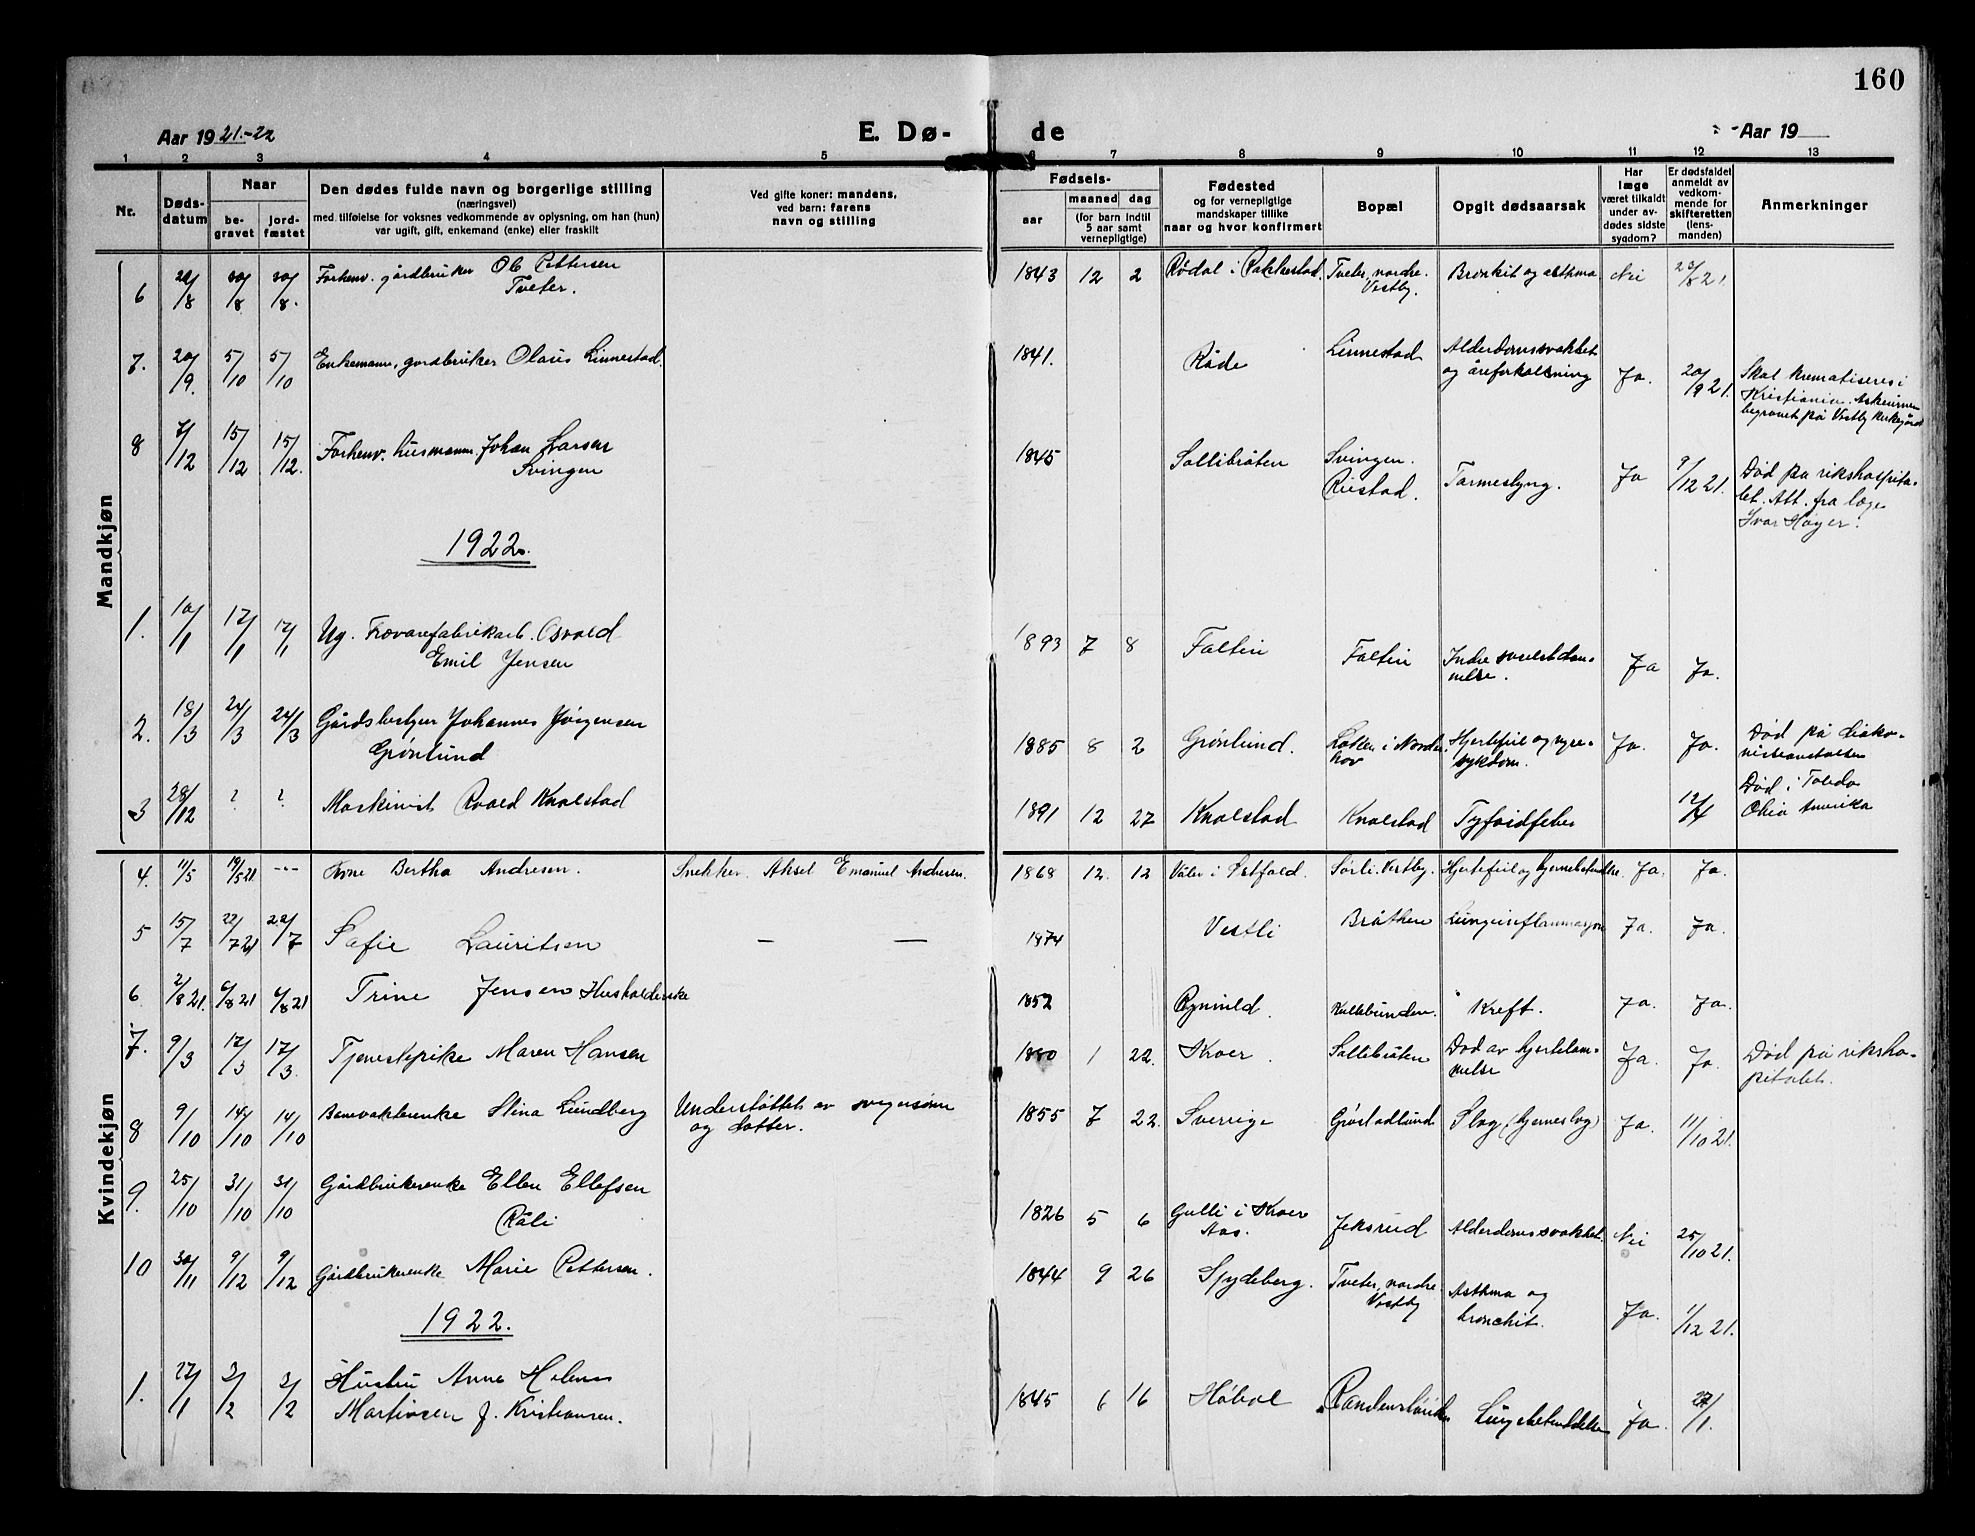 160
Aar 1921.-22 E. Dø- de Aar 19
1 2 3 4 5 6 7 8 9 10 11 12 13
Nr.
Døds-
datum
Naar
be-
gravet
jord-
fæstet
Den dødes fulde navn og borgerlige stilling
(næringsvei)
med tilføielse for voksnes vedkommende av oplysning, om han (hun)
var ugift, gift, enkemand (enke) eller fraskilt
Ved gifte koner: mandens,
ved barn: farens
navn og stilling
Fødsels-
aar
maaned dag
(for barn indtil
5 aar samt
vernepligtige)
Fødested
og for vernepligtige
mandskaper tillike
naar og hvor konfirmert
Bopæl
Opgit dødsaarsak
Har
læge
været tilkaldt
under av-
dødes sidste
sygdom?
Er dødsfaldet
anmeldt av
vedkom-
mende for
skifteretten
(lens-
manden)
Anmerkninger
Mandkjøn
6 30/8 30/8. Forhenv. gårdbruker Ole Pettersen 1843 12 2 Rødal i Rakkestad. Tveter, nordre. Bronkit og asthma Nei 23/8 21.
Tveter. Vestby.
7. 20/9. 5/10 5/10 Enkemann, gardbruker Olaus Linnestad. 1841. Råde Linnestad Alderdomssvakhet Ja. 20/9 21. Skal krematiseres i
og åreforkalkning Kristiania. Askeurnen
begravet på Vestby kirkegård
8 7/12 15/12 15/12. Forhenv. husmann Johan Larsen 1845 Sollibråten Svingen. Tarmeslyng. Ja 9/12 21. Død på rikshospita-
Svingen Riestad. let. Att. fra læge
Ivar Høyer.
1922.
1. 10/1 17/1 17/1 Ug. Trevarefabrikarb. Osvald 1893 7 8 Faltin Faltin Indre svulstdan- Ja Ja.
Emil Jensen nelse.
2. 18/3 24/3 24/3 Gårdsbestyrer Johannes Jørgensen 1885 8 2 Grønlund. i Norder- Hjertefeil og nyre- Ja. Ja. Død på diako-
Grønlund hov sykdom. nisseanstalten
3 28/12 ? ? Maskinist Roald Knalstad 1891 12 27 Knalstad Knalstad Tyfoidfeber 12/4 Død i Toledo
Ohio Amerika
Kvindekjøn
4. 11/5 19/5 21 --- Kone Bertha Andresen. Snekker Aksel Emanuel Andresen. 1868 12. 12 Våler i Østfold. Sørli. Vestby. Hjertefeil og hjernebetendelse. Ja. Ja.
5 15/7 22/7 21 22/7 Sofie Lauritsen — — 1874 Vestli Bråthen Lungeinflammasjon Ja. Ja.
6 2/8 21. 6/8 21 6/8 21 Trine Jensen Husholderske 1852 . Kreft. Ja. Ja.
7. 9/3 17/3 17/3. Tjenestepike Maren Hansen 1880 1 22. Kroer. Sollibråten Død av hjertelam- Ja. Ja. Død på riksho-
melse pitalet.
8 9/10 14/10 14/10 Banevakterenke Stina Lundberg Understøttet av svigersønn 1855 7 22. Sverrige Grøstadlund Slag (hjerneslag) Ja. 11/10 21.
og datter.
9. 25/10 31/10 31/10 Gårdbrukerenke Ellen Ellefsen 1826 5 6 Gulli i Kroer Jeksrud Alderdomssvakhet. Nei 25/10 21.
Råli Aas.
10 30/11 9/12 9/12 Gårdbrukerenke Marie Pettersen. 1844 9 26 Spydeberg. Tveter, nordre Asthma og Ja. 1/12 21.
Vestby bronchit.
1922.
1. 27/1 3/2 3/2 Hustru Anne Helene 1845 6 16 Høbøl Lungebetendelse Ja. 27/1.
Martinsen f. Kristiansen.